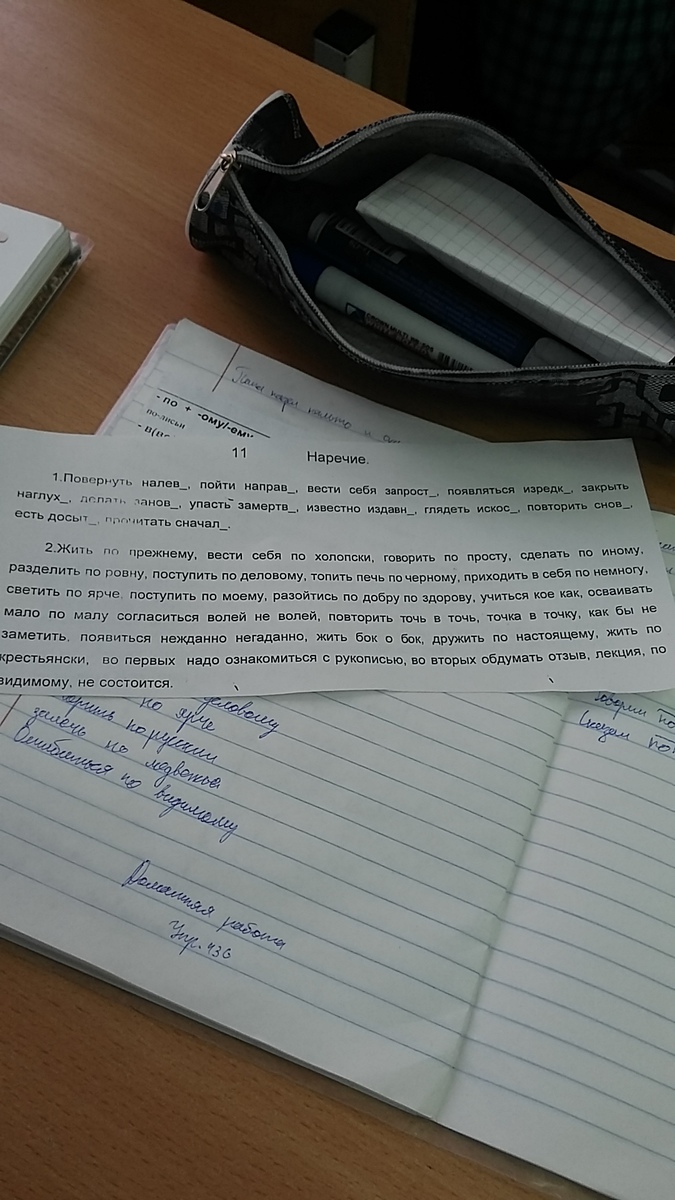 Папа надел пальто и
- по + -ому/-ему
11 Наречие.
1.Повернуть налев_, пойти направ_, вести себя запрост_, появляться изредк_, закрыть
наглух_, делать занов_, упасть замертв_, известно издавн_, глядеть искос_, повторить снов_,
есть досыт_, прочитать сначал_.
2.Жить по прежнему, вести себя по холопски, говорить по просту, сделать по иному,
разделить по ровну, поступить по деловому, топить печь по черному, приходить в себя по немногу,
светить по ярче, поступить по моему, разойтись по добру по здорову, учиться кое как, осваивать
мало по малу согласиться волей не волей, повторить точь в точь, точка в точку, как бы не
заметить, появиться нежданно негаданно, жить бок о бок, дружить по настоящему, жить по
крестьянски, во первых надо ознакомиться с рукописью, во вторых обдумать отзыв, лекция, по
видимому, не состоится.
деловому
по ярче
по русски
залечь по медвежьи
Ошибиться по видимому
Домашняя работа
Упр. 436